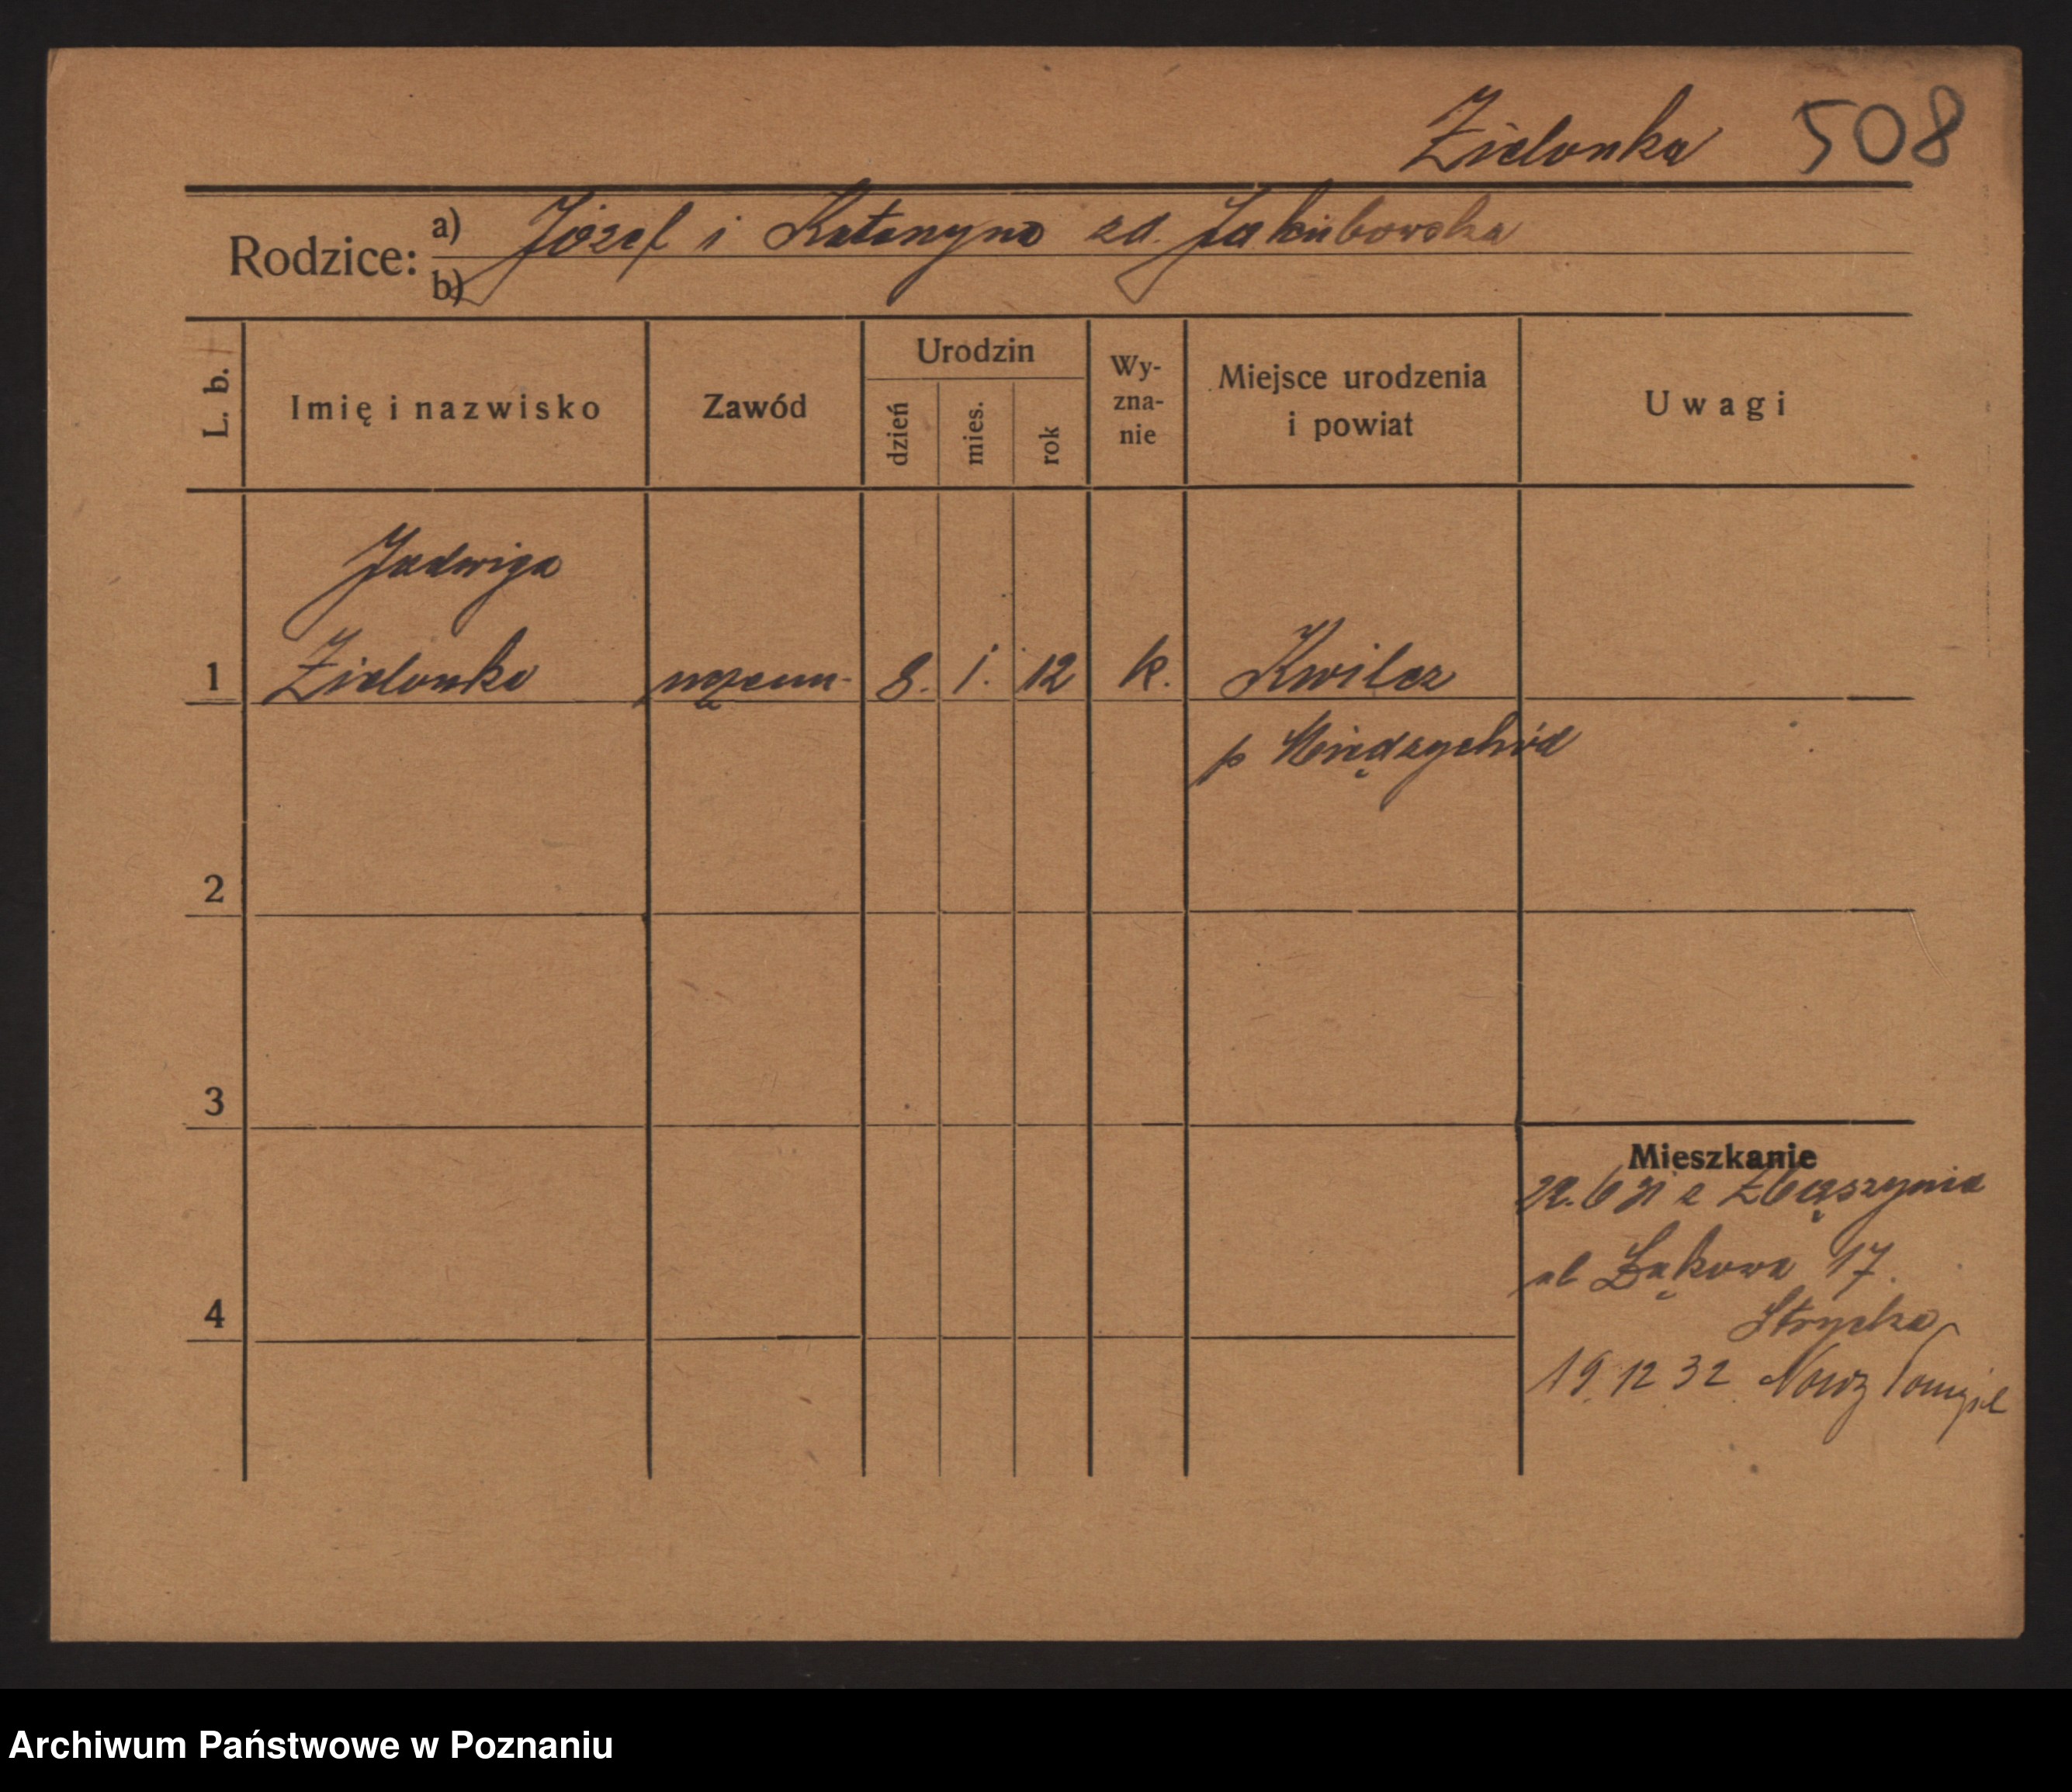 Zielonka 508
Rodzice: a) Józef i Katarzyna zd. Jakubowska
b)
L. b. Imię i nazwisko Zawód Urodzin dzień mies. rok Wy-zna-nie Miejsce urodzenia i powiat Uwagi
Jadwiga
1 Zielonka 8. 1. 12 k. Kwilcz
p Międzychód
2
3
Mieszkanie
22. 6 31 z Zbąszynia
ul Łąkowa 17.
4
19. 12 32 Nowy Tomyśl
Archiwum Państwowe w Poznaniu